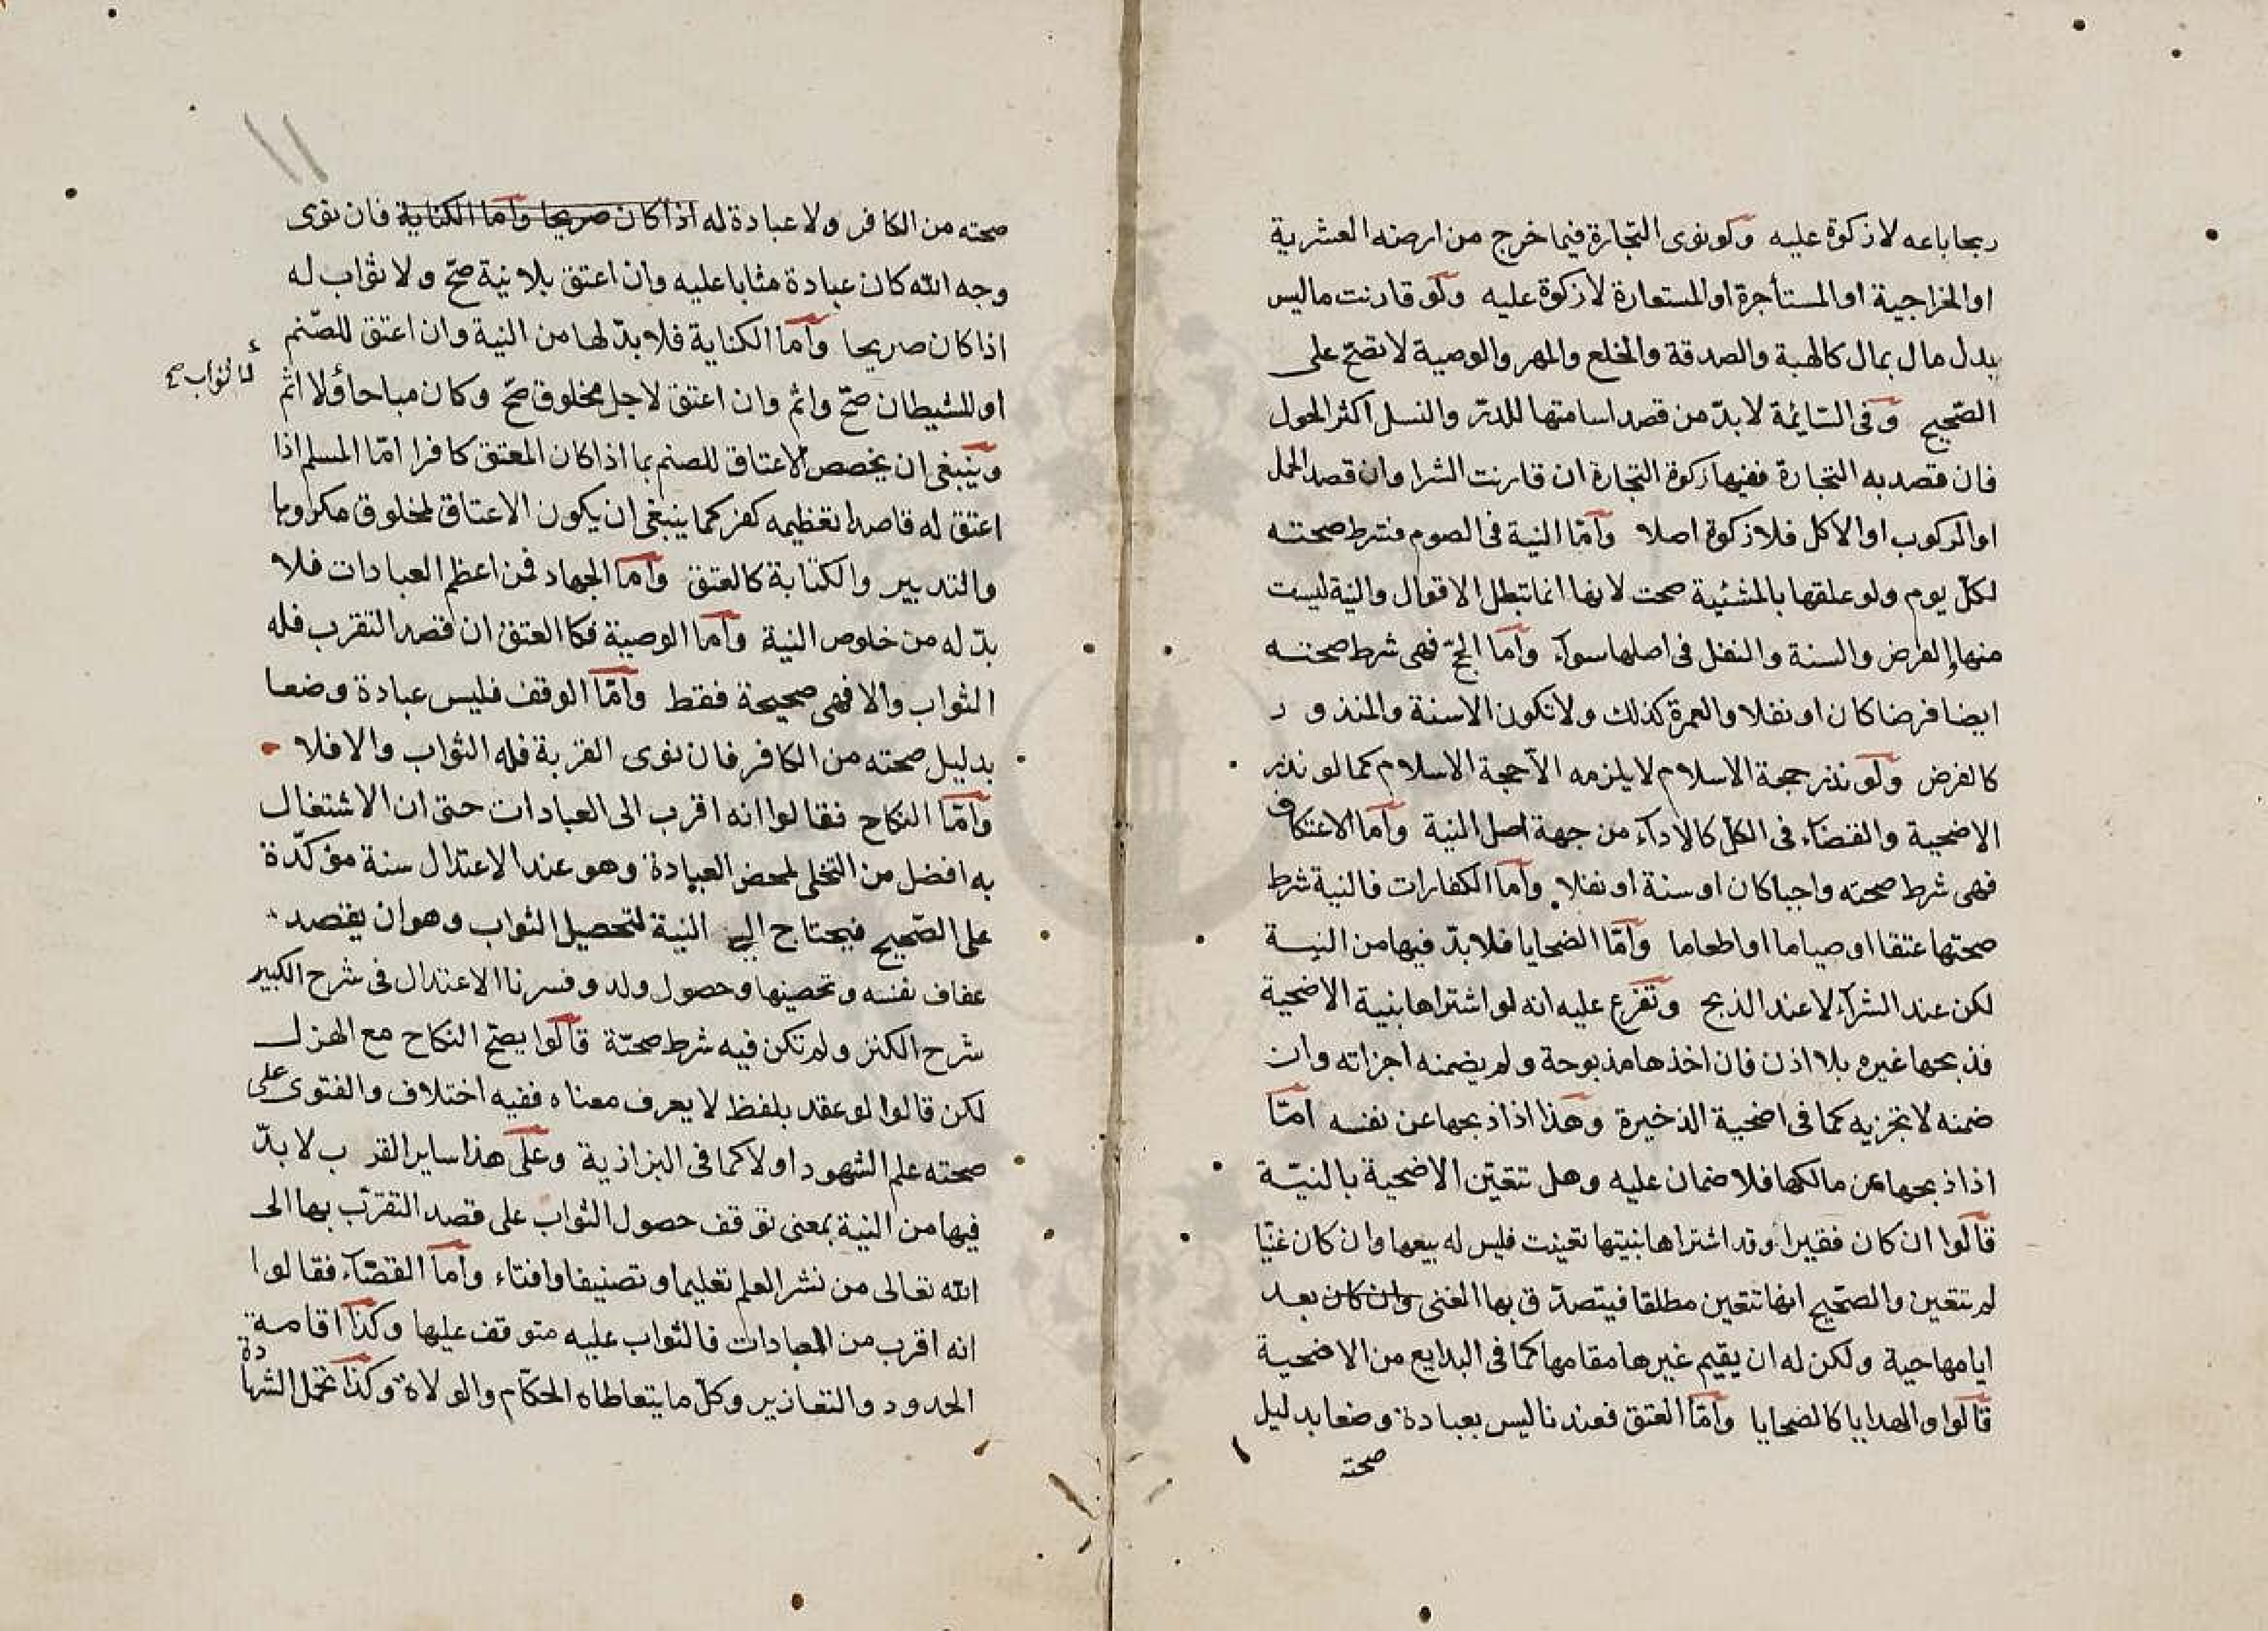 ربحا باعه لا زكوة عليه ولو نوى التجارة فيما خرج من ارضه العشرية
او الخراجية او المستأجرة او المستعارة لا زكوة عليه ولو قارنت ما ليس
بدل مال بمال كالهبة والصدقة والخلع والمهر والوصية لا تصح على
الصّحيح وفى السّائمة لا بدّ من قصد اسامتها للدرّ والنسل اكثر الحول
فان قصد به التجارة ففيها زكوة التجارة ان قارنت الشرا وان قصد الحمل
او الركوب او الاكل فلا زكوة اصلا وأمّا النية فى الصوم فشرط صحته
لكل يوم ولو علقها بالمشئية صحت لانها انما تبطل الاقوال والنية ليست
منها والفرض والسنة والنفل فى اصلها سوآء وأما الحجّ فهى شرط صحته
ايضا فرضا كان او نفلا والعمرة كذلك ولا تكون الا سنة والمنذور
كالفرض ولو نذر حجة الاسلام لا يلزمه الا حجة الاسلام كما لو نذر
الاضحية والقضآء فى الكلّ كالادآء من جهة اصل النية وأما الاعتكاف
فهى شرط صحته واجبا كان او سنة او نفلا وأما الكفارات فالنية شرط
صحتها عتقا او صياما او اطعاما وأمّا الضحايا فلا بدّ فيها من النية
لكن عند الشرآء لا عند الذبح وتفرع عليه انه لو اشتراها بنية الاضحية
فذبحها غيره بلا اذن فان اخذها مذبوحة ولم يضمنه اجزاته وان
ضمنه لا تجزيه كما فى اضحية الذخيرة وهذا اذا ذبحها عن نفسه امّا
اذا ذبحها عن مالكها فلا ضمان عليه وهل تتعيّن الاضحية بالنيّة
قالوا ان كان فقيرا وقد اشتراها بنيتها تعينت فليس له بيعها وان كان غنيّا
لم تتعين والصّحيح انها تتعين مطلقا فيتصدّق بها الغنى وان كان بعد
ايامها حية ولكن له ان يقيم غيرها مقامها كما فى البدايع من الاضحية
قالوا والهدايا كالضحايا وأمّا العتق فعندنا ليس بعبادة وضعا بدليل
صحته
١١
صحته من الكافر ولا عبادة له اذا كان صريحا وأما الكناية فان نوى
وجه الله كان عبادة مثابا عليه وان اعتق بلا نية صحّ ولا ثواب له
اذا كان صريحا وأما الكناية فلا بدّ لها من النية وان اعتق للصّنم
او للشيطان صحّ واثم وان اعتق لاجل مخلوق صحّ وكان مباحا ولا اثم
وينبغى ان يخصص الاعتاق للصنم بما اذا كان المعتق كافرا امّا المسلم اذا
اعتق له قاصدا تعظيمه كفر كما ينبغى ان يكون الاعتاق لمخلوق مكروها
والتدبير والكتابة كالعتق وأما الجهاد فمن اعظم العبادات فلا
بدّ له من خلوص النية وأما الوصية فكا العتق ان قصد التقرب فله
الثواب والا فهى صحيحة فقط وأمّا الوقف فليس عبادة وضعا
بدليل صحته من الكافر فان نوى القربة فله الثواب والا فلا
وأمّا النكاح فقالوا انه اقرب الى العبادات حتى ان الاشتغال
به افضل من التخلى لمحض العبادة وهو عند الاعتدال سنة مؤكدّة
على الصّحيح فيحتاج الى النية لتحصيل الثواب وهو ان يقصد
عفاف نفسه وتحصينها وحصول ولد وفسرنا الاعتدال فى شرح الكبير
شرح الكنز ولم تكن فيه شرط صحتّة قالوا يصحّ النكاح مع الهزل
لكن قالوا لو عقد بلفظ لا يعرف معناه ففيه اختلاف والفتوى على
صحته علم الشهود او لا كما فى البزازية وعلى هذا ساير القرب لا بدّ
فيها من النية بمعنى توقف حصول الثواب على قصد التقرّب بها الى
الله تعالى من نشر العلم تعليما وتصنيفا وافتاء وأما القضآء فقالوا
انه اقرب من العبادات فالثواب عليه متوقف عليها وكذا اقامة
الحدود والتعازير وكلّ ما يتعاطاه الحكّام والولاة وكذا تحمل الشهادة